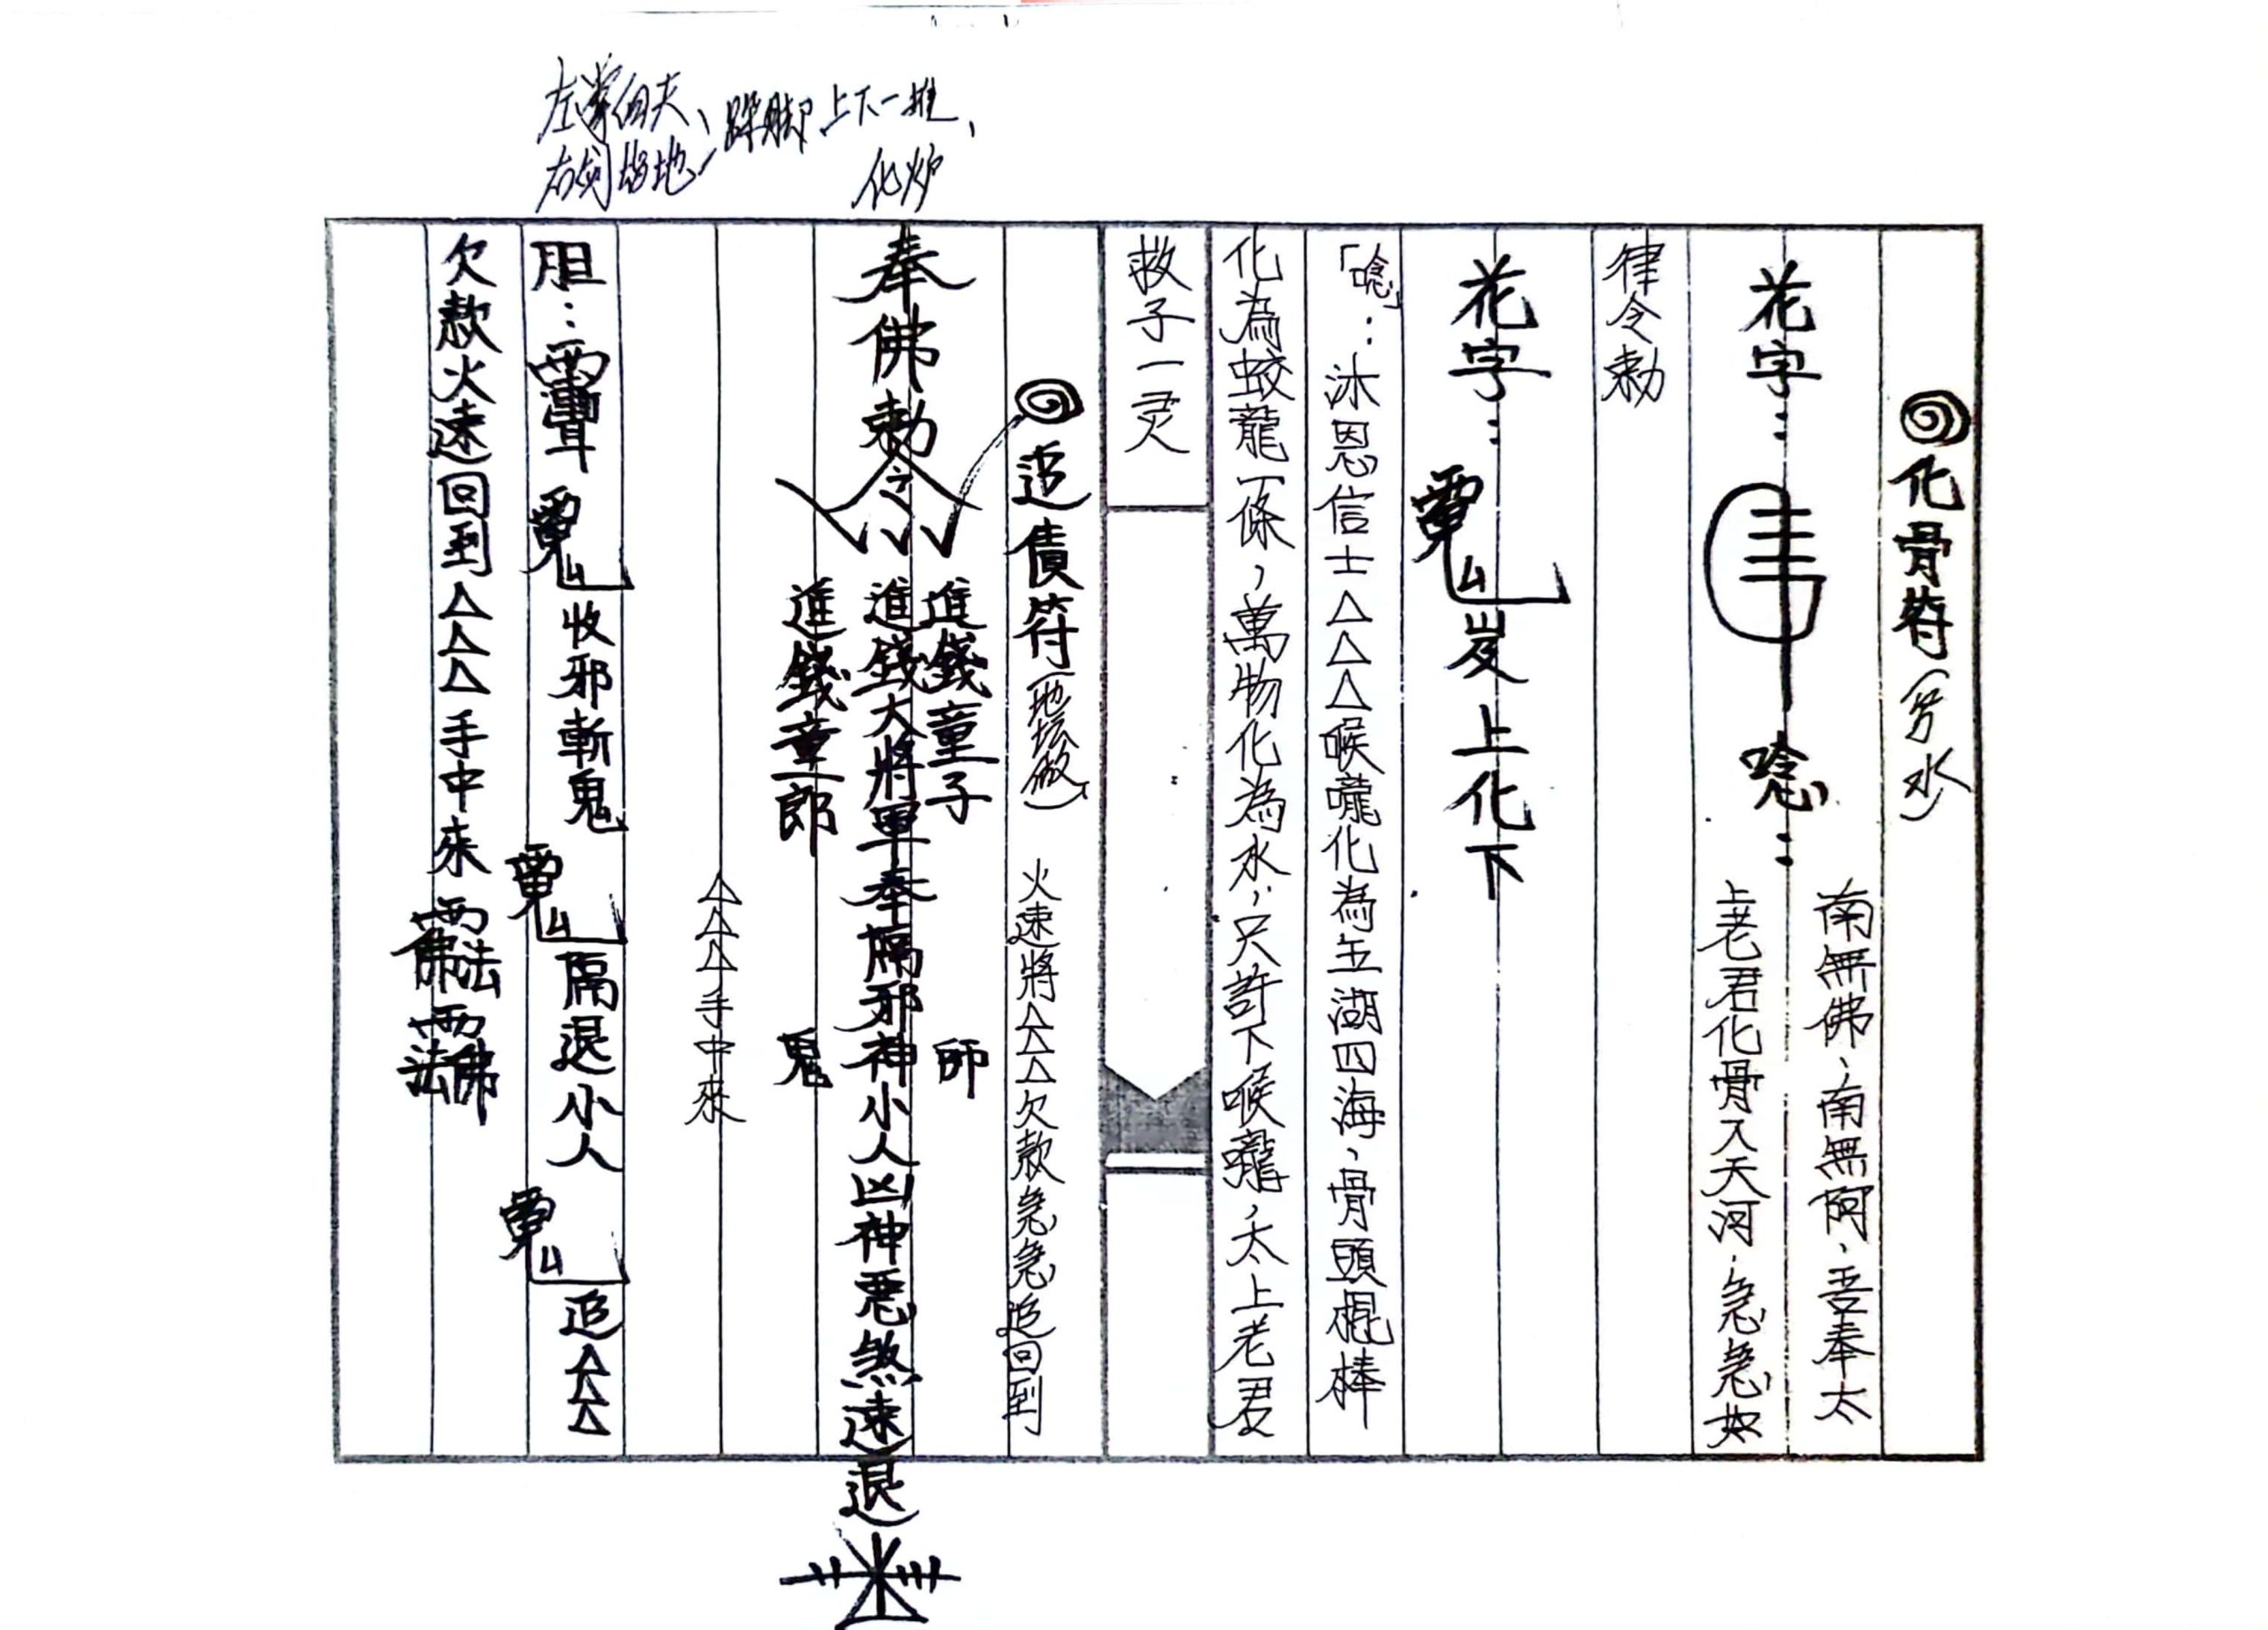 化骨符
花字： 唸：
南無佛、南無阿、吾奉太
上老君化骨入天河、急急如
律令勅
花字：
上化下
「唸」：沐恩信士△△△喉嚨化為五湖四海、骨頭棍棒
化為蛟龍一條，萬物化為水，只許下喉嚨，太上老君
救子一灵
追債符(地坛做)
火速將△△△欠款急急追回到
△△△手中來
奉佛勅令
進錢童子
進錢大將軍奉隔邪神小人凶神惡煞速退
進錢童郎
師
鬼
胆：
收邪斬鬼
隔退小人
追△△△
欠款火速回到△△△手中來
左掌向天、
右劍指地、
跺脚上下一推、
化炉